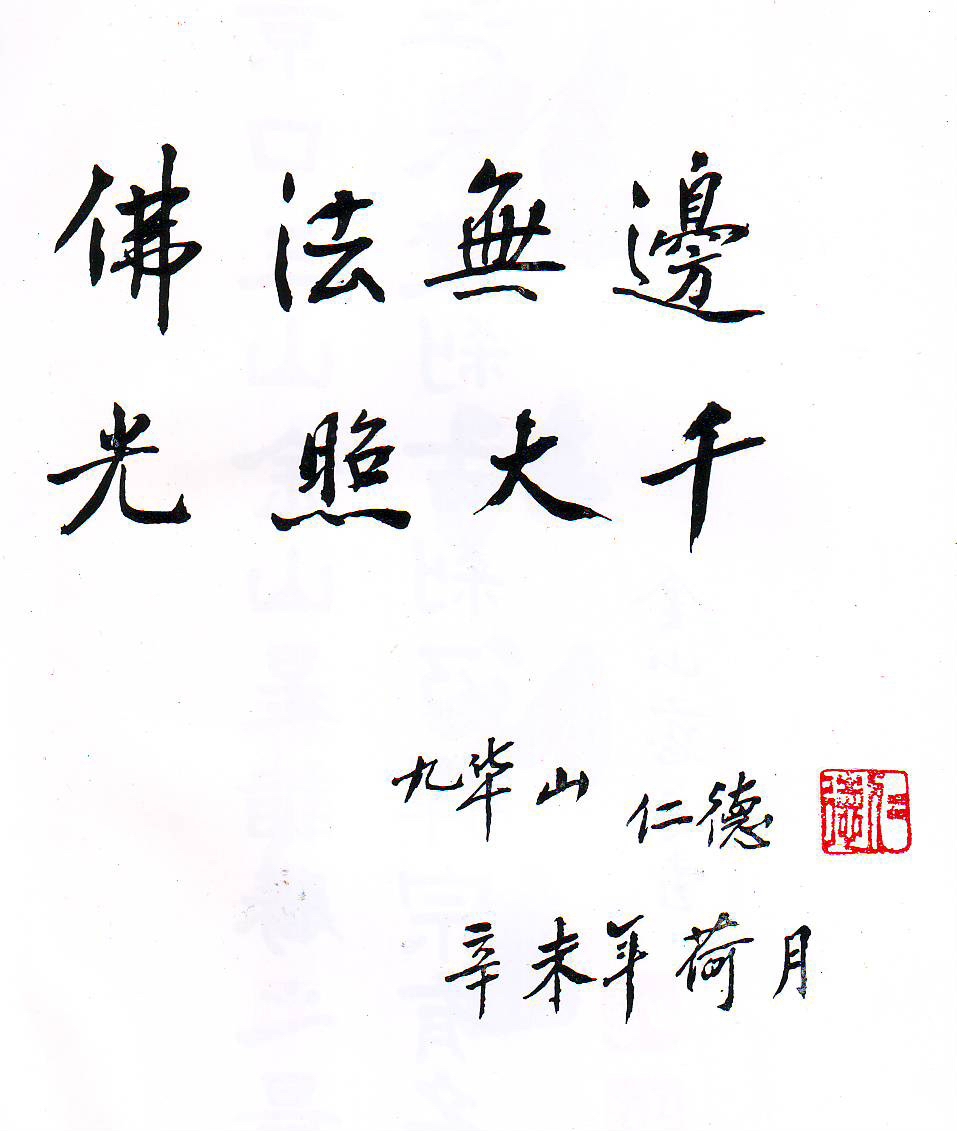 佛法無邊
光照大千
九华山 仁德
辛未年荷月
仁德